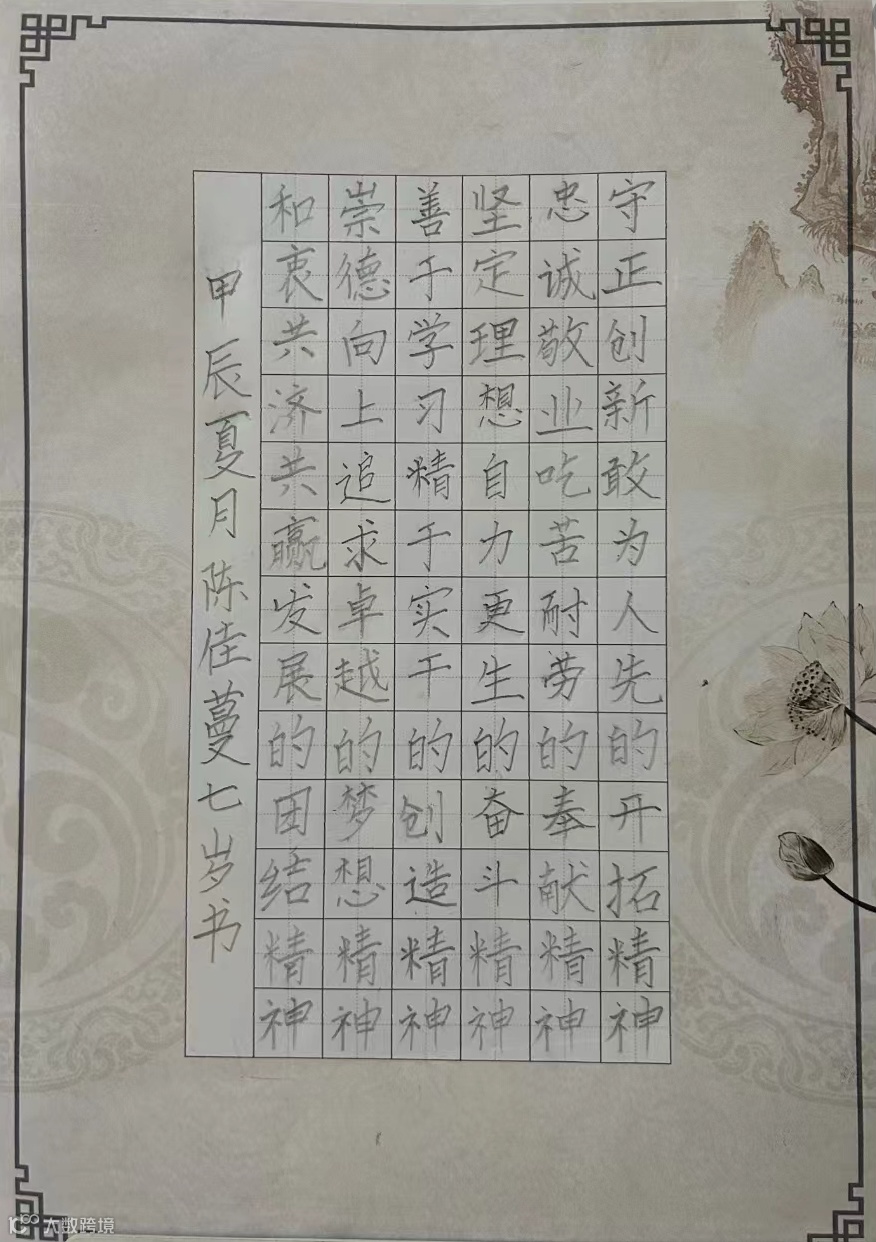 守正创新敢为人先的开拓精神
忠诚敬业吃苦耐劳的奉献精神
坚定理想自力更生的奋斗精神
善于学习精于实干的创造精神
崇德向上追求卓越的梦想精神
和衷共济共赢发展的团结精神
甲辰夏月陈佳蔓七岁书
大数跨境